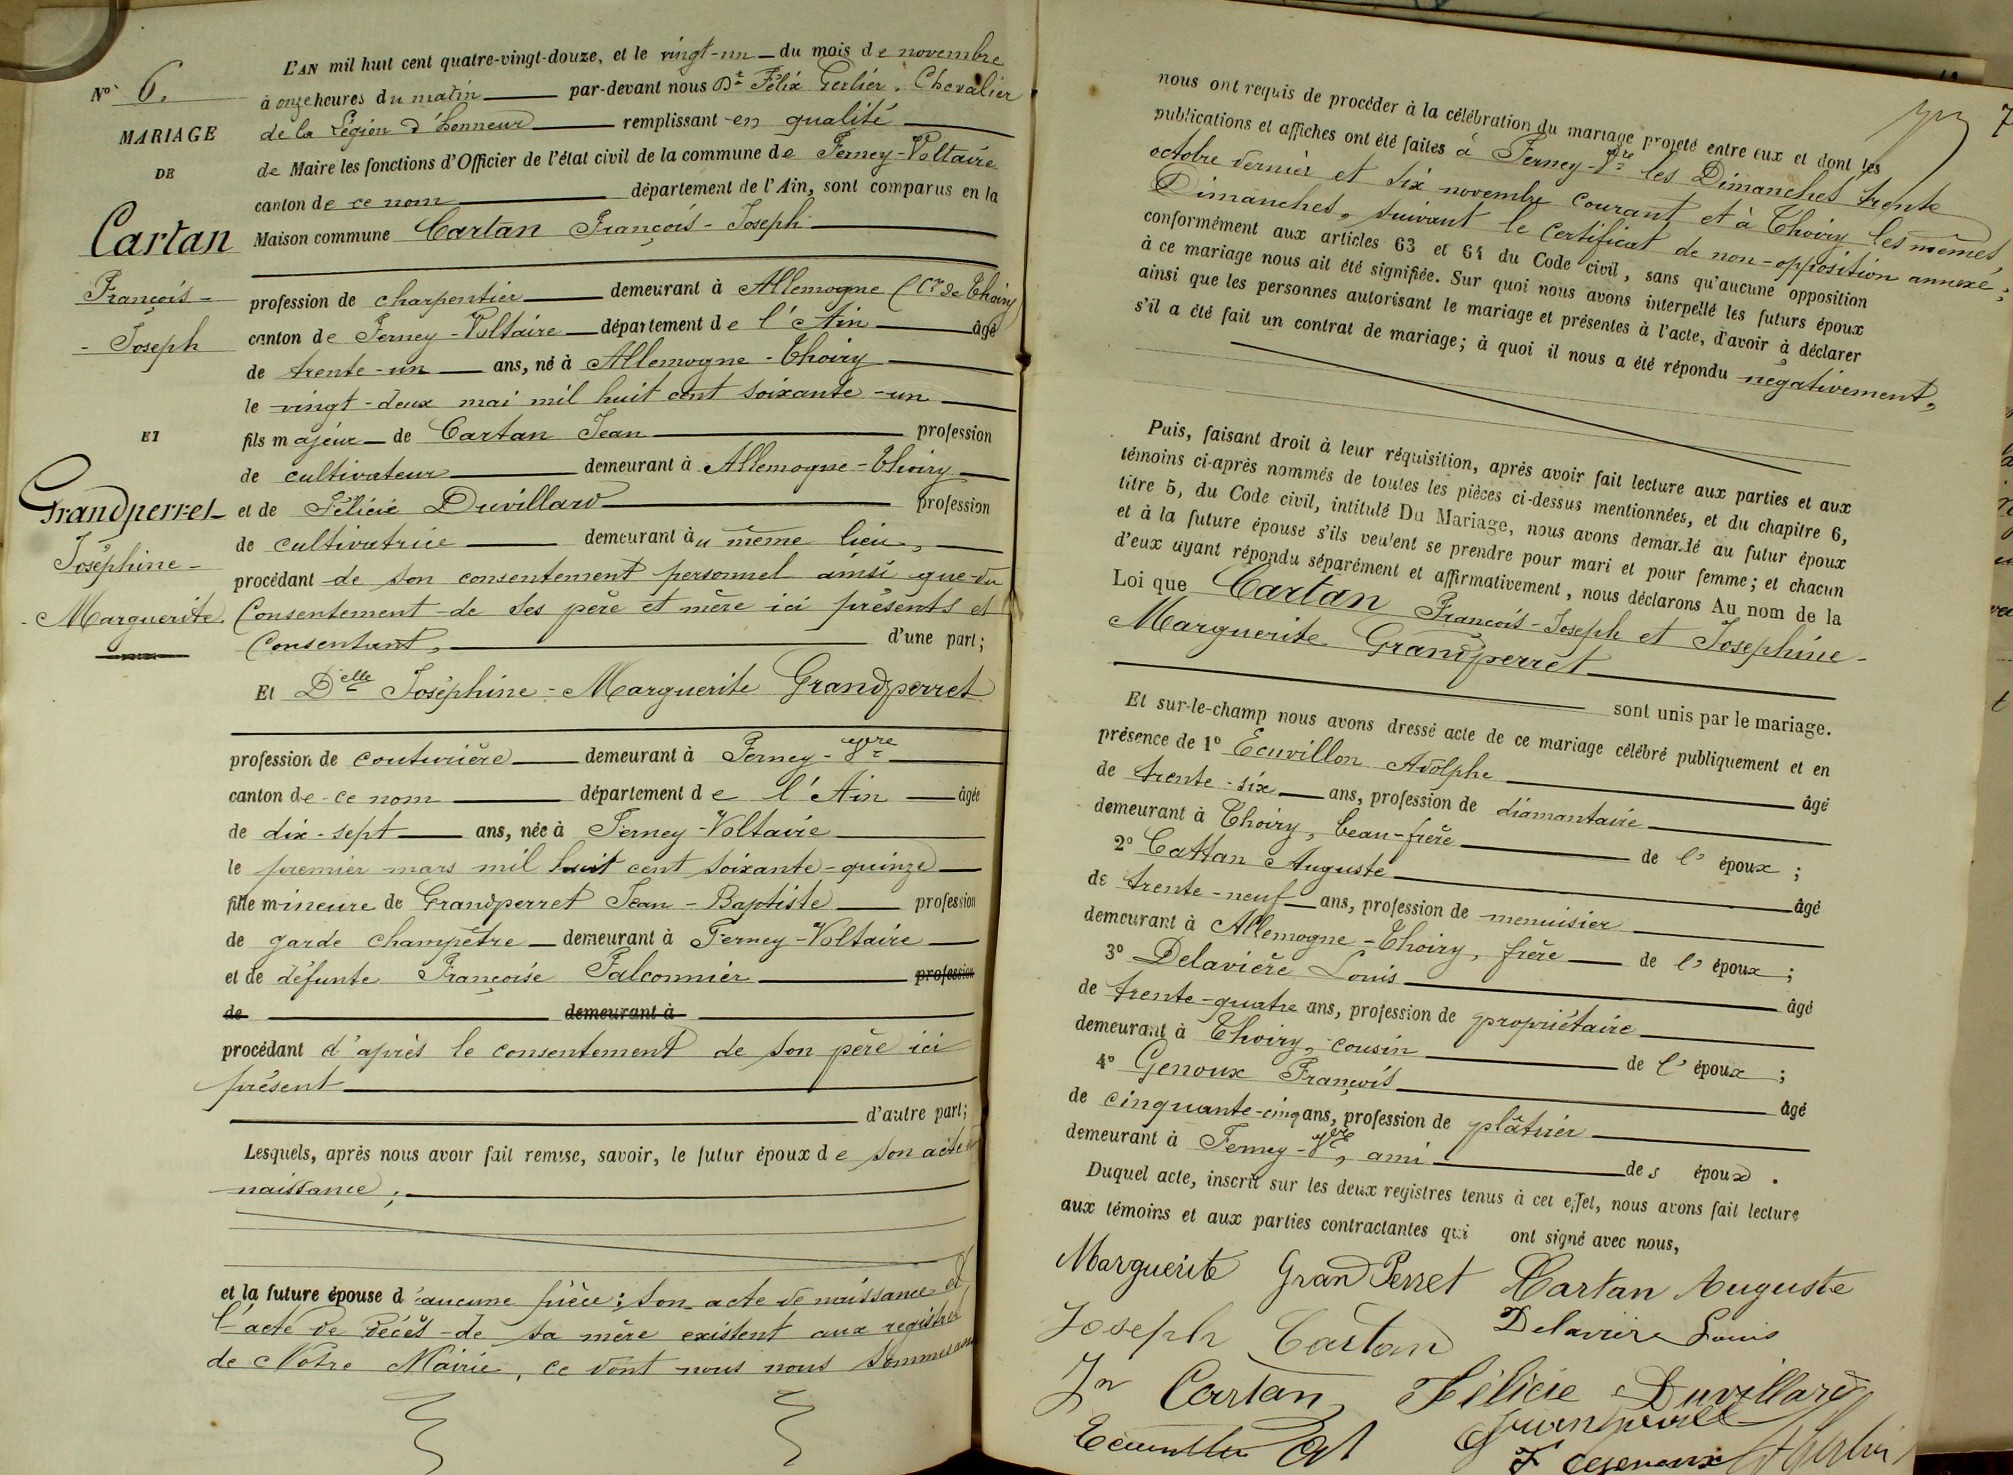 L'AN mil huit cent quatre-vingt-douze, et le vingt-un du mois de novembre
N° 6.
à onze heures du matin par-devant nous Dr Félix Gerlier, Chevalier
de la Légion d'honneur remplissant en qualité
MARIAGE
de Maire les fonctions d'Officier de l'état civil de la commune de Ferney-Voltaire
DE
canton de ce nom département de l'Ain, sont comparus en la
Cartan
Maison commune Cartan François-Joseph
François-
profession de charpentier demeurant à Allemogne (Cne de Thoiry)
-Joseph
canton de Ferney-Voltaire département de l'Ain âgé
de trente-un ans, né à Allemogne-Thoiry
le vingt-deux mai mil huit cent soixante-un
ET
fils majeur de Cartan Jean profession
de cultivateur demeurant à Allemogne-Thoiry
Grandperret
et de Félicie Duvillard profession
de cultivatrice demeurant à u même lieu,
Joséphine-
procédant de son consentement personnel ainsi que du
-Marguerite.
Consentement de ses père et mère ici présents et
Consentant, d'une part;
Et Delle Joséphine-Marguerite Grandperret
profession de couturière demeurant à Ferney-Vre
canton de ce nom département de l'Ain âgée
de dix-sept ans, née à Ferney-Voltaire
le premier mars mil huit cent soixante-quinze
fille mineure de Grandperret Jean-Baptiste profession
de garde champêtre demeurant à Ferney-Voltaire
et de défunte Françoise Falconnier profession
de demeurant à
procédant d'après le consentement de son père ici
présent
d'autre part;
Lesquels, après nous avoir fait remise, savoir, le futur époux de son acte de
naissance;
et la future épouse d'aucune pièce: son acte de naissance et
l'acte de décès de sa mère existent aux registres
de Notre Mairie, ce dont nous nous sommes
7
nous ont requis de procéder à la célébration du mariage projeté entre eux et dont les
publications et affiches ont été faites à Ferney-Vre les Dimanches trente
octobre dernier et six novembre courant et à Thoiry les mêmes
Dimanches, suivant le certificat de non-opposition annexé;
conformément aux articles 63 et 64 du Code civil, sans qu'aucune opposition
à ce mariage nous ait été signifiée. Sur quoi nous avons interpellé les futurs époux
ainsi que les personnes autorisant le mariage et présentes à l'acte, d'avoir à déclarer
s'il a été fait un contrat de mariage; à quoi il nous a été répondu négativement,
Puis, faisant droit à leur réquisition, après avoir fait lecture aux parties et aux
témoins ci-après nommés de toutes les pièces ci-dessus mentionnées, et du chapitre 6,
titre 5, du Code civil, intitulé Du Mariage, nous avons demandé au futur époux
et à la future épouse s'ils veulent se prendre pour mari et pour femme; et chacun
d'eux ayant répondu séparément et affirmativement, nous déclarons Au nom de la
Loi que Cartan François-Joseph et Josephine-
Marguerite Grandperret
sont unis par le mariage.
Et sur-le-champ nous avons dressé acte de ce mariage célébré publiquement et en
présence de 1° Ecuvillon Adolphe âgé
de trente-six ans, profession de diamantaire
demeurant à Thoiry, beau-frère de l'époux;
2° Cattan Auguste âgé
de trente-neuf ans, profession de menuisier
demeurant à Allemogne-Thoiry, frère de l'époux;
3° Delavière Louis âgé
de trente-quatre ans, profession de propriétaire
demeurant à Thoiry, cousin de l'époux;
4° Genoux François âgé
de cinquante-cinq ans, profession de plâtrier
demeurant à Ferney-Vre, ami des époux.
Duquel acte, inscrit sur les deux registres tenus à cet effet, nous avons fait lecture
aux témoins et aux parties contractantes qui ont signé avec nous,
Marguerite GranPerret Cartan Auguste
Joseph Cartan Delavière Louis
Jn Cartan Félicie Duvillard
Grandperret
F Genoux